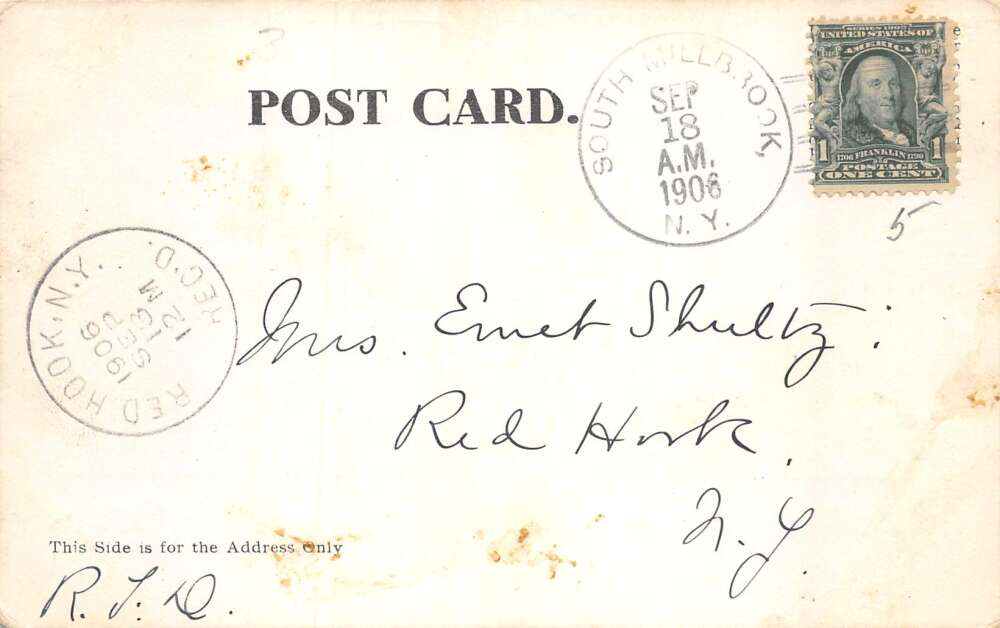 3
POST CARD.
SOUTH MILLBROOK,
SEP
18
A.M.
1906
N. Y.
SERIES 1902
UNITED STATES OF
AMERICA
1 1706 FRANKLIN 1790 1
POSTAGE
ONE CENT
5
RED HOOK, N.Y.
REC'D.
12 M
SEP
18
1906
Mrs. Ernet Shultz;
Red Hook.
N. Y.
This Side is for the Address Only
R. F. D.